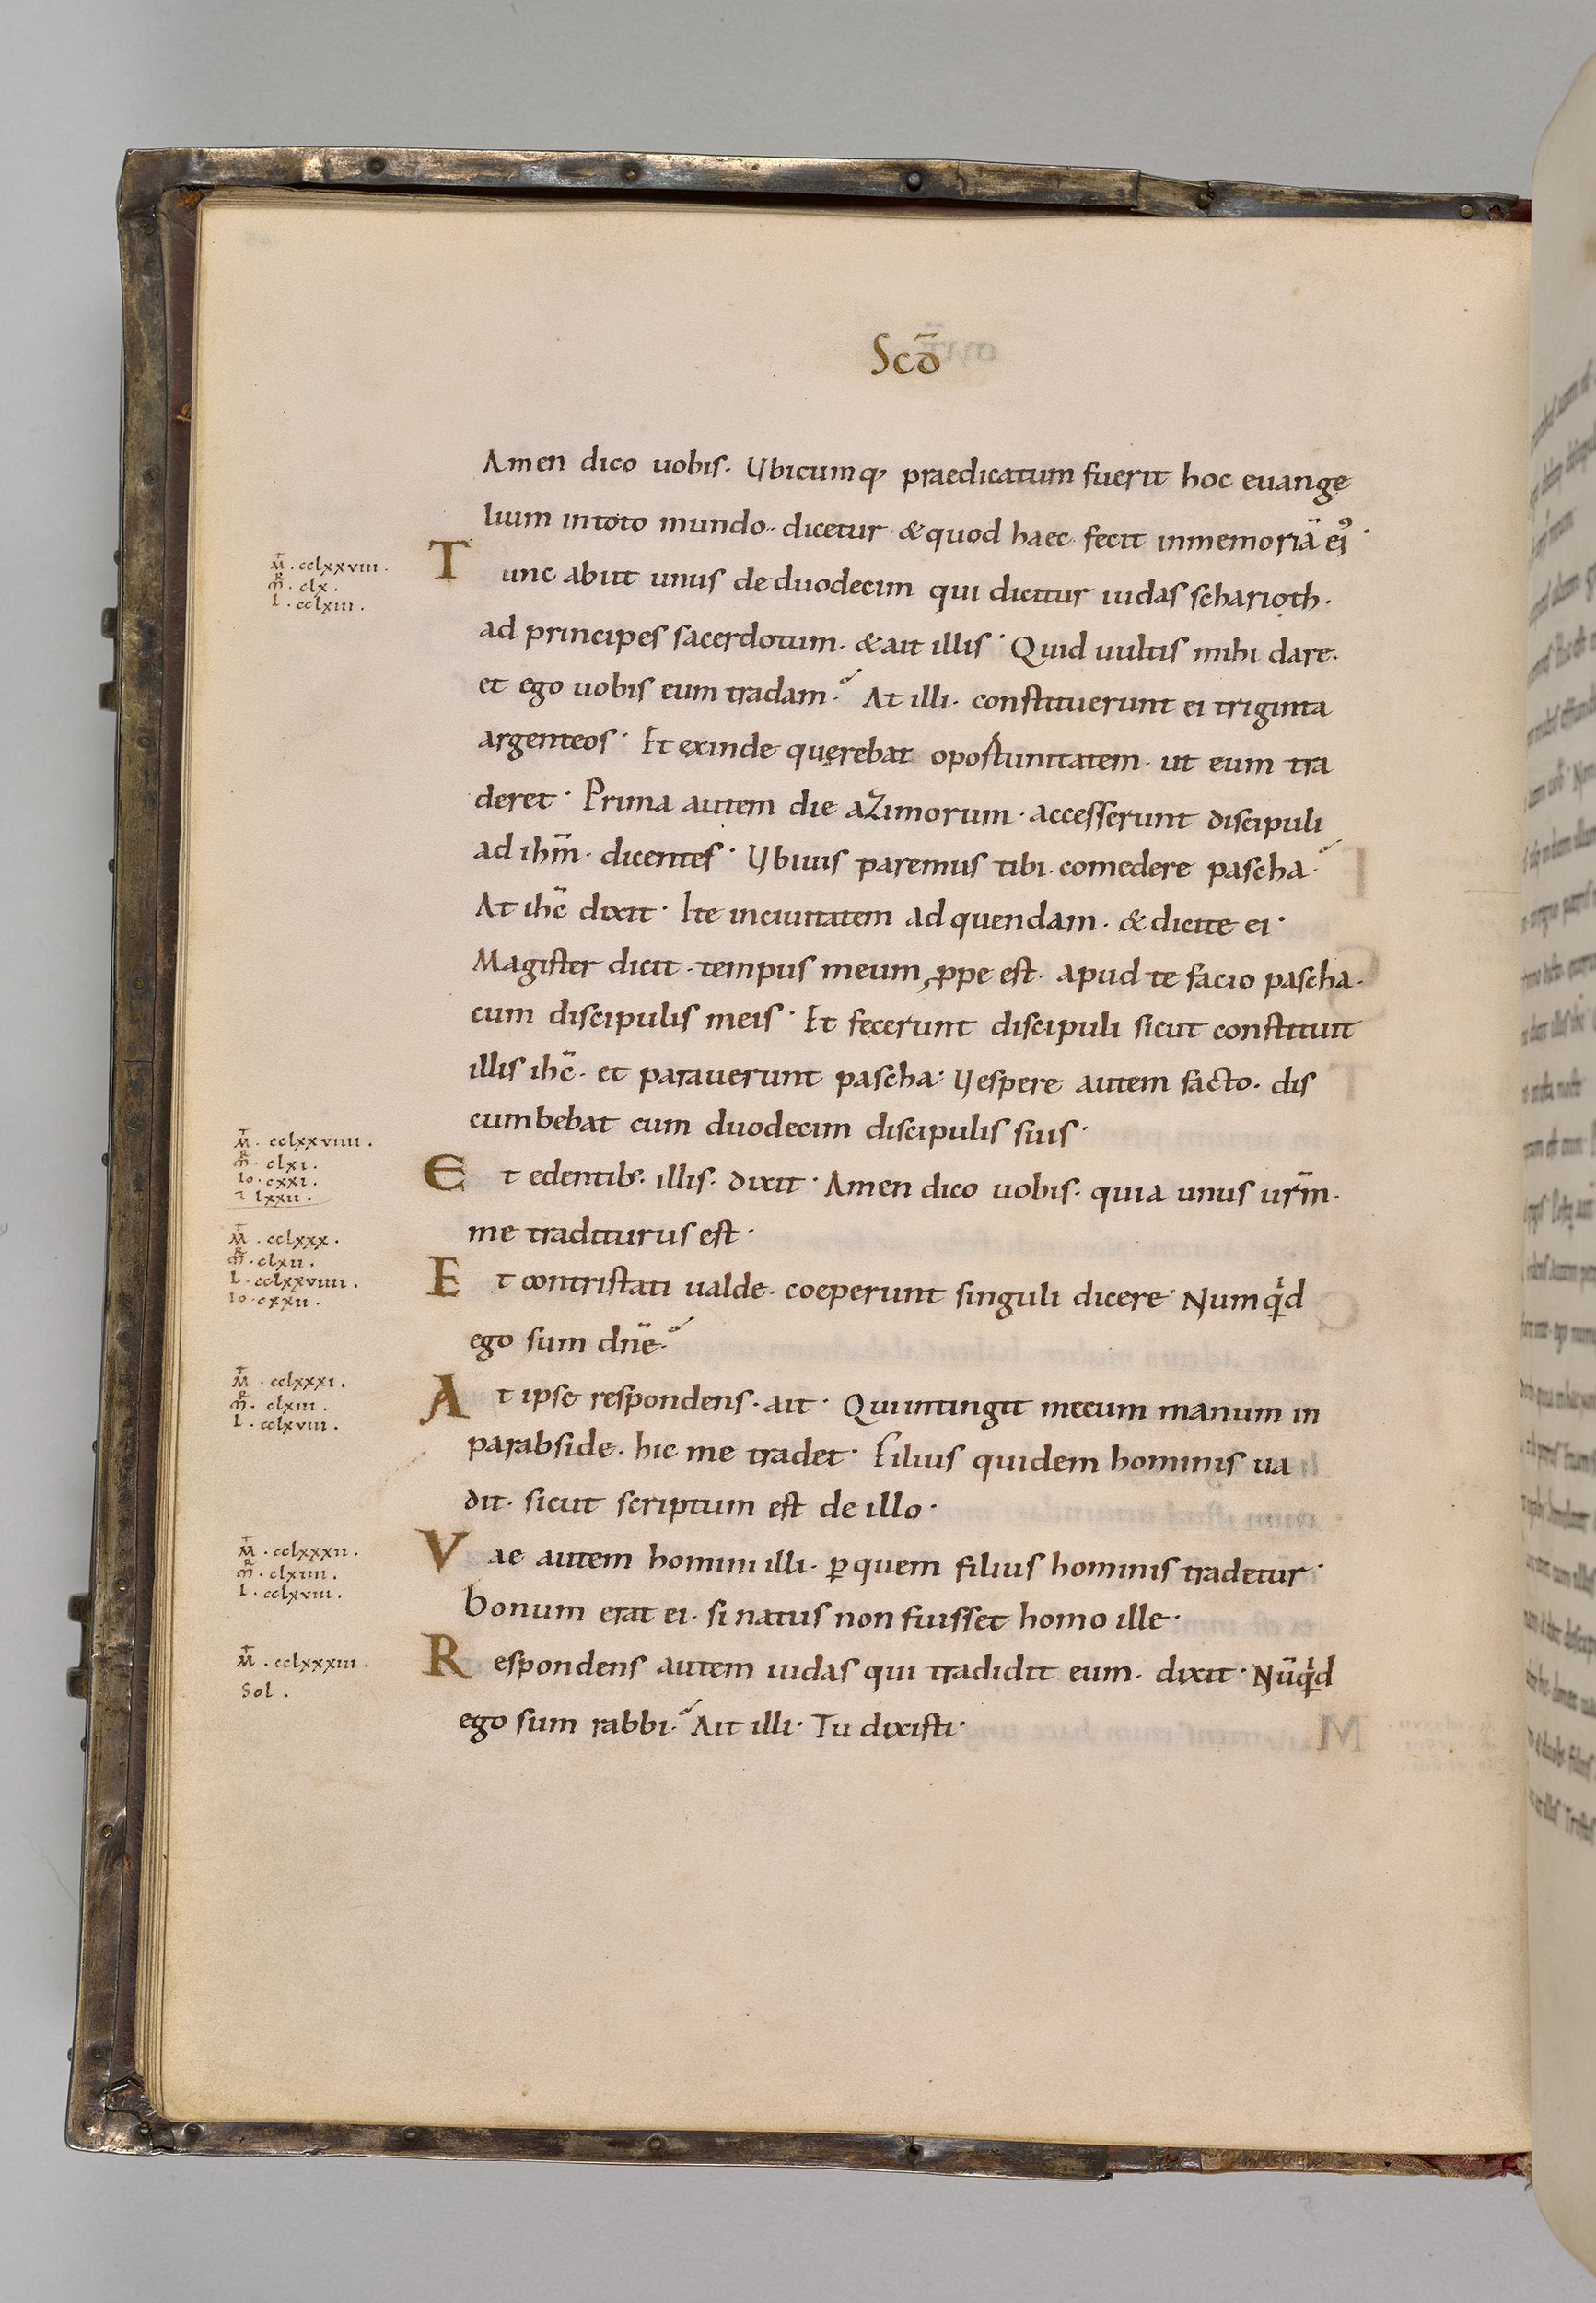 Scd̄
Amen dico uobis. Ubicumq; praedicatum fuerit hoc euange
lium in toto mundo. dicetur & quod haec fecit inmemoriā ei᾿
Tunc abiit unus de duodecim qui dicitur iudas scharioth.
ad principes sacerdotum. & ait illis. Quid uultis mihi dare.
et ego uobis eum tradam. At illi. constituerunt ei triginta
argenteos. Et exinde querebat oportunitatem. ut eum tra
deret. Prima autem die azimorum. accesserunt discipuli
ad ihm̄. dicentes. Ubi uis paremus tibi. comedere pascha.
At ihc̄ dixit. Ite in ciuitatem ad quendam. & dicite ei.
Magister dicit. tempus meum ꝓpe est. apud te facio pascha.
cum discipulis meis. Et fecerunt discipuli sicut constituit
illis ihc̄. et parauerunt pascha. Uespere autem facto. dis
cumbebat cum duodecim discipulis suis.
Et edentib;. illis. dixit. Amen dico uobis. quia unus urm̄.
me traditurus est.
Et contristati ualde. coeperunt singuli dicere. Numqⁱd
ego sum dnē.
At ipse respondens. ait. Qui intingit mecum manum in
parabside. hic me tradet. Filius quidem hominis ua
dit. sicut scriptum est de illo.
Vae autem homini illi. ꝑ quem filius hominis tradetur.
bonum erat ei. si natus non fuisset homo ille.
Respondens autem iudas qui tradidit eum. dixit. Nūqⁱd
ego sum rabbi. Ait illi. Tu dixisti.
M̄. cclxxviii.
m̄R. clx.
l. cclxiii.
M̄. cclxxviiii.
m̄R. clxi.
io. cxxi.
7 lxxii.
M̄. cclxxx.
m̄R. clxii.
l. cclxxviiii.
io. cxxii.
M̄. cclxxxi.
m̄R. clxiii.
l. cclxviii.
M̄. cclxxxii.
m̄R. clxiiii.
l. cclxviii.
M̄. cclxxxiii.
Sol.